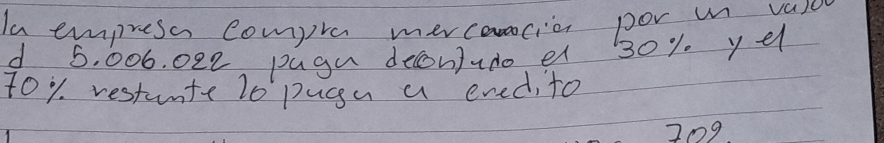 la empresa compra mercancia por un valor
d 5.006.022 paga decontado el 30% y el
70% restante lo paga a credito
709